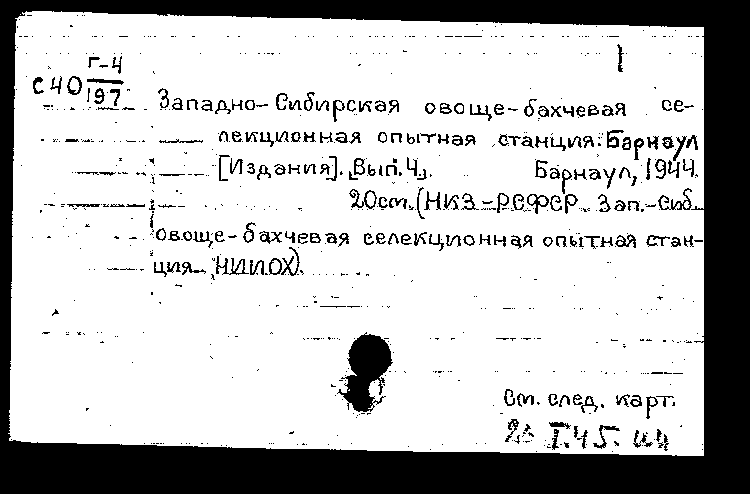 1
Г-4
С40 197
Западно-Сибирская овоще-бахчевая се-
лекционная опытная станция. Барнаул
[Издания]. Вып. 4. Барнаул, 1944.
20см. (НКЗ-РСФСР Зап.-Сиб.
овоще-бахчевая селекционная опытная стан-
ция НИИОХ).
См. след. карт.
I.45.